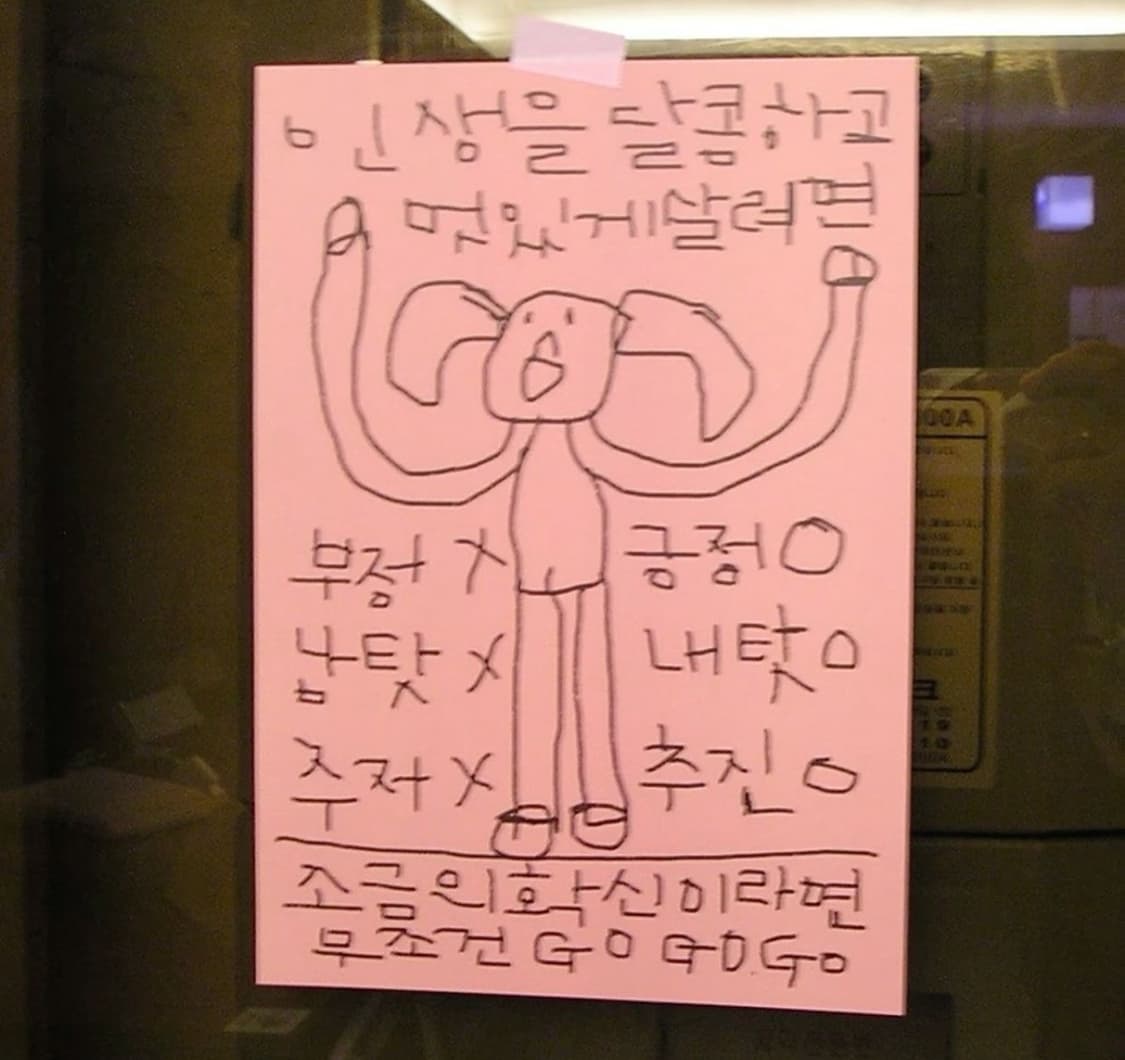 인생을 달콤하고
멋있게 살려면
부정 X 긍정 O
남탓 X 내탓 O
주저 X 추진 O
조금의 확신이라면
무조건 GO GO.GO
00A